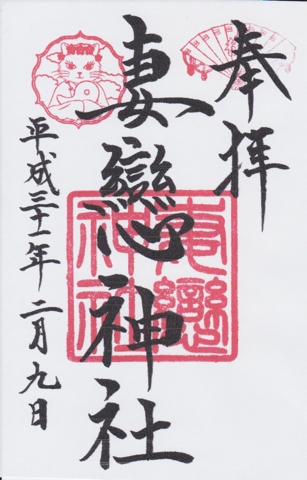 奉拝
妻戀神社
妻戀神社
平成三十一年二月九日